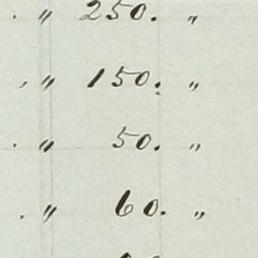 . " 250. "
, " 150. "
. " 50. "
. " 60. "